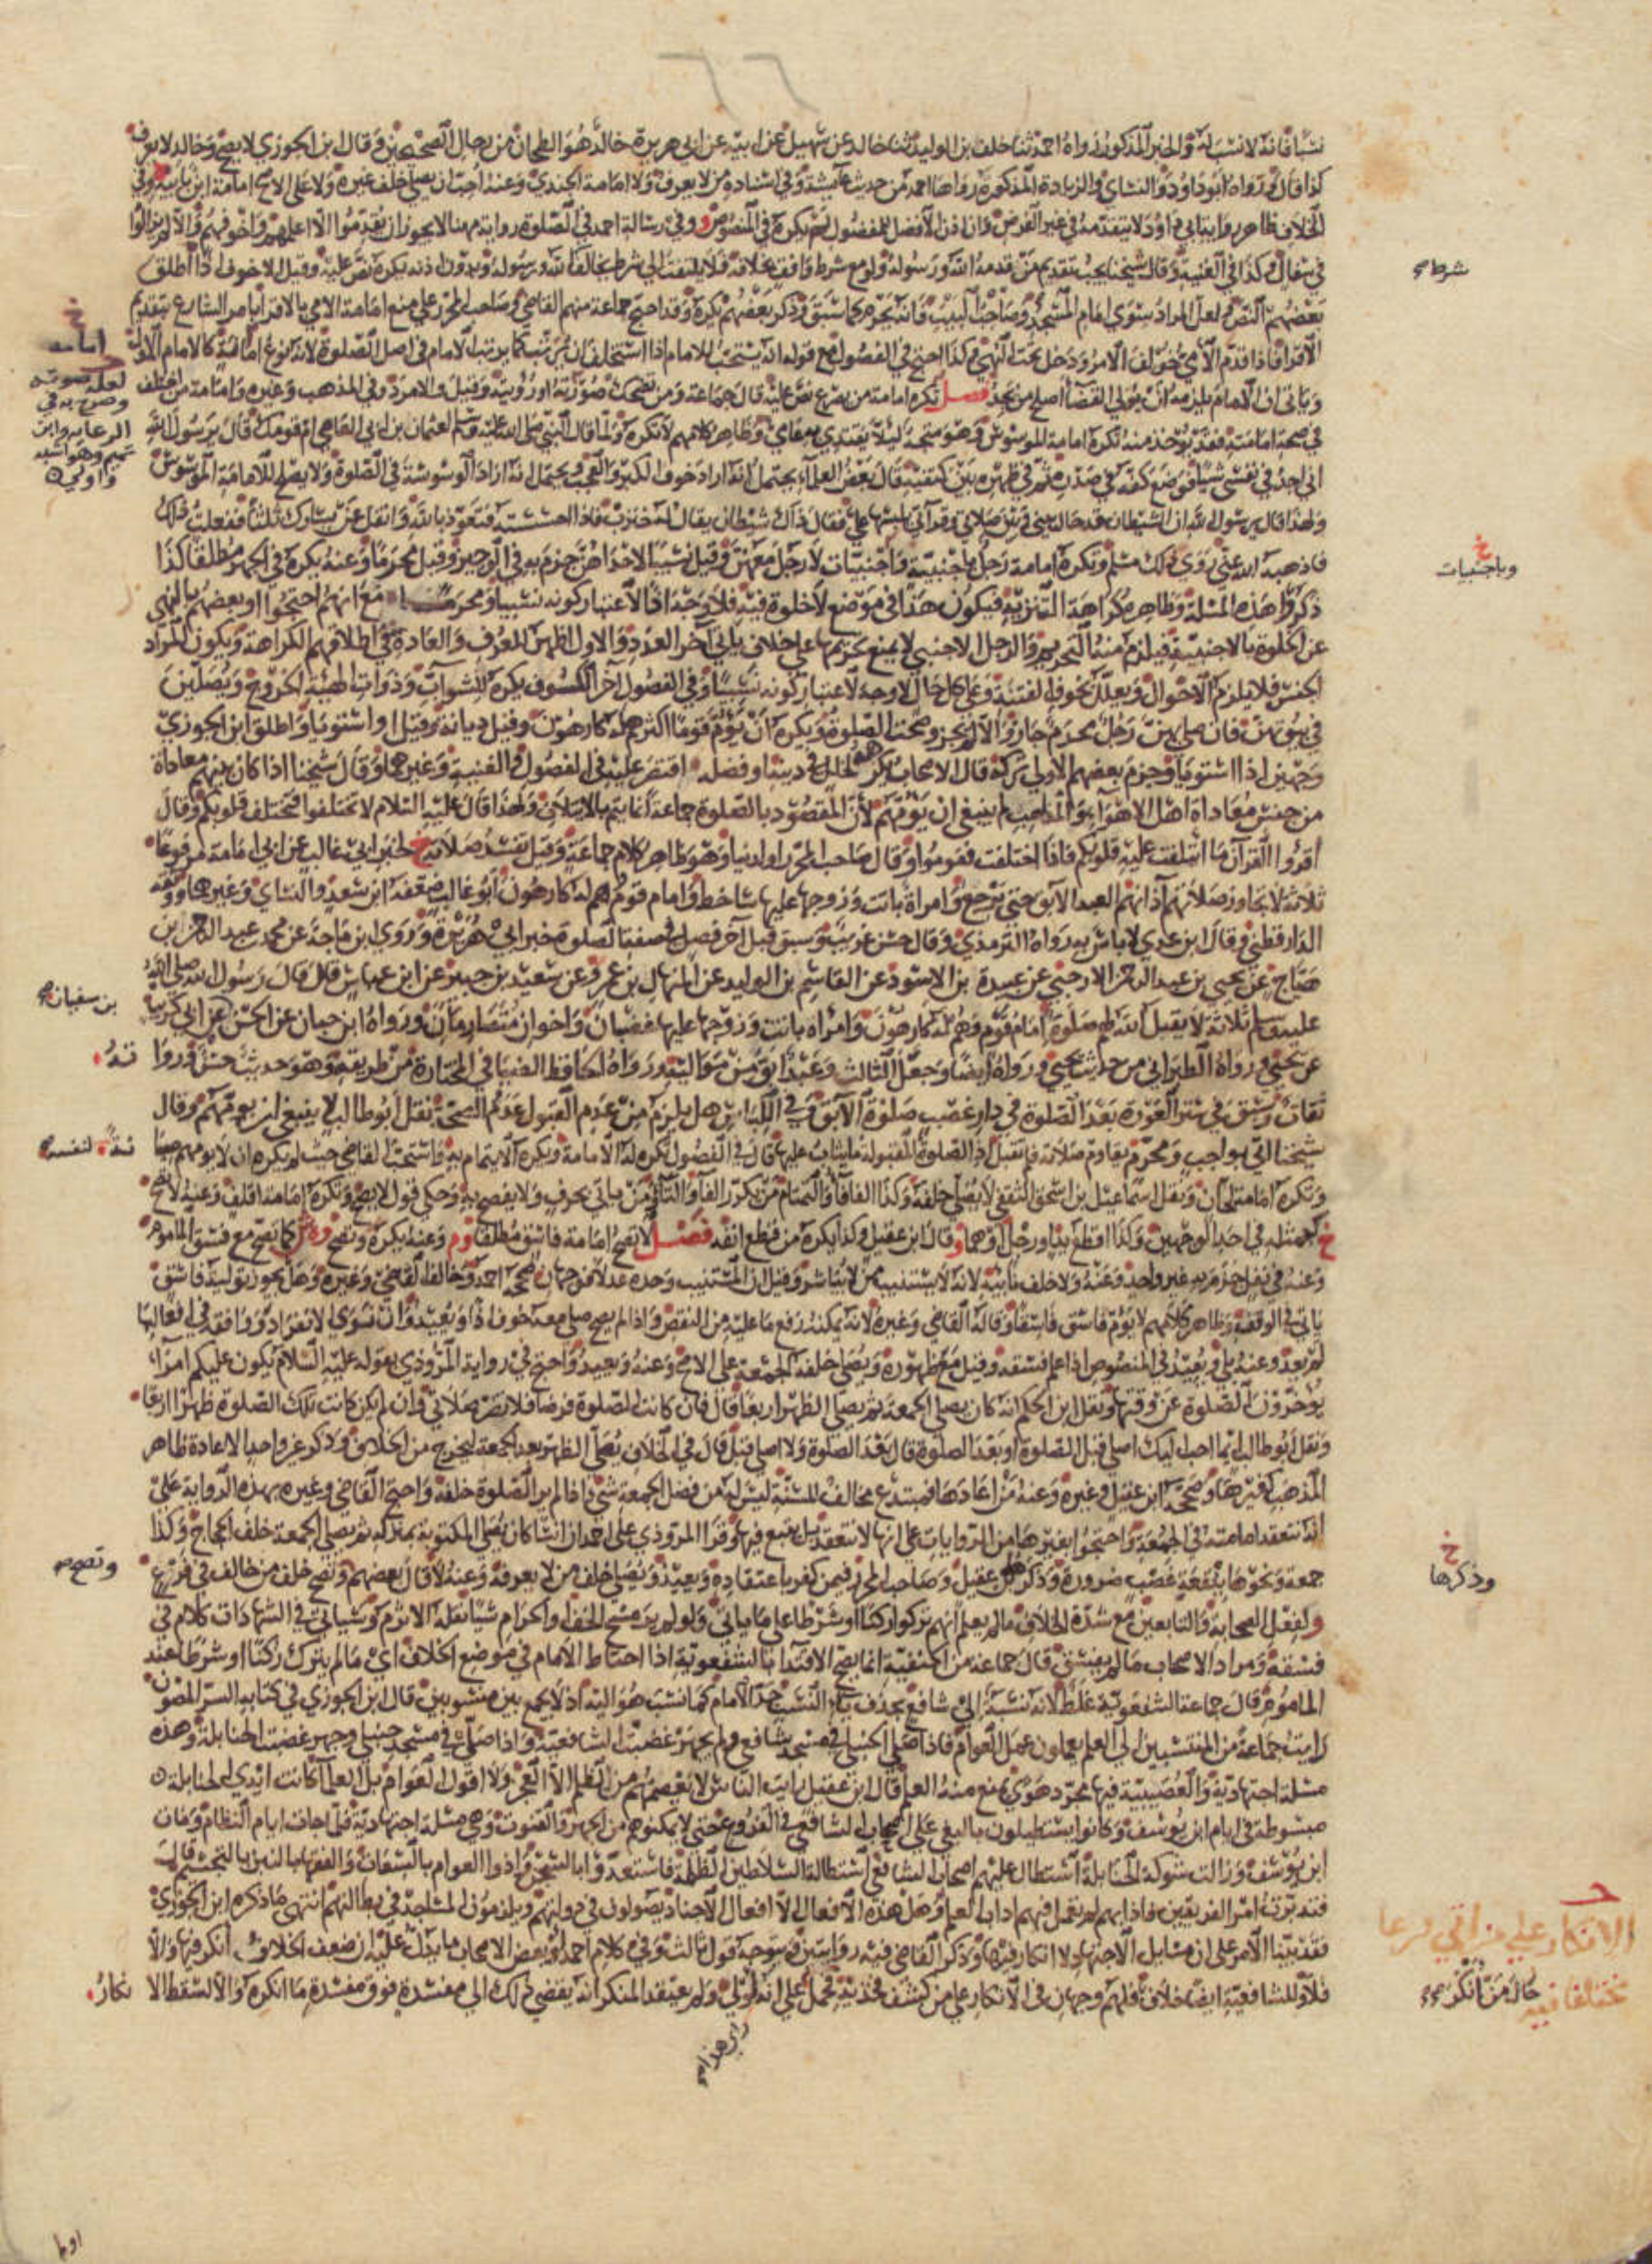 ٦٦
نسبا فانه لا نسب له والخبر المذكور رواه احمد ثنا خلف بن الوليد ثنا خالد عن سهيل عن ابيه عن ابي هريرة خالد هو الطحان من رجال الصحيحين وقال ابن الجوزي لا يصح وخالد لا يعرف
كذا قال ورواه ابو داود والنسائي والزيادة المذكورة رواها احمد من حديث عائشة وفي اسناده من لا يعرف ولا امامة الجندي وعنه احب ان يصلي خلف غيره ولا على الاصح امامة ابن بابيه وفي
الخلاف ظاهر رواية ابي داود لا يتقدمه في غير الفرض وان اذن الافضل للمفضول لم يكره في المنصوص وفي رسالة احمد في الصلوة رواية مهنا لا يجوز ان يقدموا الا اعلمهم واخوفهم والا لم يزالوا
في سفال وكذا في الغنية وقال شيخنا يجب تقديم من قدمه الله ورسوله ولو مع شرط واقف بخلافه فلا يلتفت الى شرط يخالف الله ورسوله وبدون اذنه يكره نص عليه وقيل الا خوف اذا اطلق
بعضهم النص ولعل المراد سوى امام المسجد وصاحب البيت وانه يحرم كما سبق وذكر بعضهم يكره وقد احتج جماعة منهم القاضي وصاحب المحرر على منع امامة الامي بالاقرا بامر الشارع بتقديم
الاقرا فاذا قدم الامي خولف الامر ودخل تحت النهي وكذا احتج في الفصول مع قوله انه يستحب للامام اذا استخلف ان يرتب كما يرتب الامام في اصل الصلوة لانه نوع امامة كالامام الاول
وياتي ان الامام يلزمه ان يولي القضا اصلح من يجد فصل تكره امامة من يصرع نص عليه قال جماعة ومن تضحك صورته او رؤيته وقيل والامرد وفي المذهب وغيره وامامة من اختلف
في صحة امامته فقد يؤخذ منه تكره امامة الموسوس وهو متجه لئلا يقتدي به عامي وظاهر كلامهم لا تكره ولما قال النبي صلى الله عليه وسلم لعثمان بن ابي العاصي ام قومك قال يا رسول الله
اني اجد في نفسي شيئا فوضع كفه في صدره ثم في ظهره بين كتفيه قال بعض العلماء يحتمل انه اراد خوف الكبر والعجب ويحتمل انه اراد الوسوسة في الصلوة ولا يصلح للامامة الموسوس
ولهذا قال يا رسول الله ان الشيطان قد حال بيني وبين صلاتي وقراتي يلبسها علي فقال ذاك شيطان يقال له خنزب فاذا احسسته فتعوذ بالله واتفل عن يسارك ثلثا ففعلت ذلك
فاذهبه الله عني روى ذلك مسلم وتكره امامة رجل باجنبية واجنبيات لا رجل معهن وقيل نسيبا لاحداهن جزم به في الوجيز وقيل محرما وعنه يكره في الجهر مطلقا كذا
ذكروا هذه المسئلة وظاهره كراهة التنزيه فيكون هذا في موضع لا خلوة فيه فلا وجه اذا لاعتبار كونه نسيبا ومحرما مع انهم احتجوا او بعضهم بالنهي
عن الخلوة بالاجنبية فيلزم منه التحريم والرجل الاجنبي لا يمنع تحريمها على خلاف ياتي آخر العدد والاول اظهر للعرف والعادة في اطلاقهم الكراهة ويكون المراد
الجنس فلا يلزم الاحوال ويعلل بخوف الفتنة وعلى كل حال لا وجه لاعتبار كونه نسيبا وفي الفصول آخر الكسوف يكره للشواب وذوات الهيئة الخروج ويصلين
في بيوتهن فان صلى بهن رجل محرم جاز والا لم يجز وصحت الصلوة ويكره ان يؤم قوما اكثرهم له كارهون وقيل ديانة وقيل او استويا واطلق ابن الجوزي
وجهين اذا استويا وجزم بعضهم الاولى تركه قال الاصحاب يكره لخلل في دينه او فضله اقتصر عليه في الفصول والغنية وغيرهما وقال شيخنا اذا كان بينهم معاداة
من جنس معاداة اهل الاهواء والمذاهب لم ينبغي ان يؤمهم لان المقصود بالصلوة جماعة انما يتم بالايتلاف ولهذا قال عليه السلام لا تختلفوا فتختلف قلوبكم وقال
اقرؤا القرآن ما ائتلفت عليه قلوبكم فاذا اختلفت فقوموا وقال صاحب المحرر او لدنيا وهو ظاهر كلام جماعة وقيل تفسد صلاته خ لخبر ابي غالب عن ابي امامة مرفوعا
ثلاثة لا تجاوز صلاتهم آذانهم العبد الآبق حتى يرجع وامراة باتت وزوجها عليها ساخط وامام قوم هم له كارهون ابو غالب ضعفه ابن سعد والنسائي وغيرهما ووثقه
الدارقطني وقال ابن عدي لا باس به رواه الترمذي وقال حسن غريب وسبق قبل آخر فصل في صفة الصلوة خبر ابي هريرة وروى ابن ماجة عن محمد بن عبد الرحمن بن
صياح عن يحيى بن عبد الرحمن الارحبي عن عبيدة بن الاسود عن القاسم بن الوليد عن المنهال بن عمرو عن سعيد بن جبير عن ابن عباس قال قال رسول الله صلى الله
عليه وسلم ثلاثة لا يقبل الله لهم صلوة امام قوم وهم له كارهون وامراه باتت وزوجها عليها غضبان واخوان متصارمان ورواه ابن حبان عن الحسن عن ابي كريب
عن يحيى ورواه الطبراني من حديث يحيى ورواه ايضا وجعل الثالث وعبد ابق من مواليه ورواه الحافظ الضيا في المختارة من طريقه وهو حديث حسن ورواته
ثقات وسبق في ستر العورة بعد الصلوة في دار غصب صلوة الآبق وفي اللباس هل يلزم من عدم القبول عدم الصحة نقل ابو طالب لا ينبغي ان يؤمهم وقال
شيخنا اتى بواجب ومحرم يقاوم صلاته فلم تقبل اذ الصلوة المقبولة ما يثاب عليها قال في الفصول تكره له الامامة ويكره الايتمام به واستحب القاضي حيث لم يكره ان لا يؤمهم صيانة لنفسه
وتكره امامة لحان ونقل اسماعيل بن اسحق الثقفي لا يصلى خلفه وكذا الفافا والتمتام من يكرر الفا والتا ومن ياتي بحرف ولا يفصح به وحكي قول لا يصح وتكره امامة اقلف وعنه لا تصح
خ كمثله في احد الوجهين وكذا اقطع يد او رجل او هما وقال ابن عقيل وكذا يكره من قطع انفه فصل لا تصح امامة فاسق مطلقا وم وعنه يكره وتصح وه ش كما تصح مع فسق الماموم
وعنه في نفل جزم به غير واحد وعنه ولا خلف نائبه لانه لا يستنيب من لا يباشر وقيل ان المستنيب وحده عدلا فوجهان صححه احمد وخالفه القاضي وغيره وهل يجوز توليته فاسق
ياتي في الوقف وظاهر كلامهم لا يؤم فاسق فاسقا وقاله القاضي وغيره لانه يمكنه رفع ما عليه من النقص واذا لم يصح صلى معه خوف اذا ويعيد وان نوى الانفراد ووافقه في افعالها
لم يعد وعنه بلى ويعيد في المنصوص اذا علم فسقه وقيل مع ظهوره ويصلى خلفه الجمعة على الاصح وعنه ويعيد واحتج في رواية المروذي بقوله عليه السلام يكون عليكم امراء
يؤخرون الصلوة عن وقتها ونقل ابن الحكم انه كان يصلي الجمعة ثم يصلي الظهر اربعا قال فان كانت الصلوة فرضا فلا تضر صلاتي وان لم يكن كانت تلك الصلوة ظهرا اربعا
ونقل ابو طالب ايما احب اليك اصلي قبل الصلوة او بعد الصلوة قال بعد الصلوة ولا اصلي قبل قال في الخلاف يصلي الظهر بعد الجمعة ليخرج من الخلاف وذكر غير واحد الاعادة ظاهر
المذهب كغيرها وصححه ابن عقيل وغيره وعنه من اعادها فمبتدع مخالف للسنة ليس له من فضل الجمعة شي اذا لم ير الصلوة خلفه واحتج القاضي وغيره بهذه الرواية على
انه تنعقد امامته في الجمعة واحتجوا بغيرها من الروايات على انها لا تنعقد بل يتبع فيها وقرا المروذي على احمد ان انسا كان يصلي المكتوبة بمنزله ثم يصلي الجمعة خلف الحجاج وكذا
جمعة ونحوها ببقعة غصب ضرورة وذكره ابن عقيل وصاحب المحرر فيمن كفر باعتقاده ويعيد ويصلى خلف من لا يعرفه وعنه لا قال بعضهم وتصح خلف من خالف في فرع
ولفعل الصحابة والتابعين مع شدة الخلاف ما لم يعلم انهم تركوا ركنا او شرطا على ما ياتي ولو لم ير مسح الخف او اكرام شيئا نقله الاثرم وسياتي في الشهادات كلام في
فسقه ومراد الاصحاب ما لم يفسق قال جماعة من الحنفية انما يصح الاقتدا بالشفعوية اذا احتاط الامام في موضع الخلاف اي ما لم يترك ركنا او شرطا عند
الماموم وقال جماعة الشفعوية غلط لانه نسبة الى شافع بحذف ياء النسب جد الامام كما نسب هو اليه اذ لا يجمع بين منسوبين قال ابن الجوزي في كتابه السر المصون
رايت جماعة من المنتسبين الى العلم يعملون عمل العوام فاذا صلى الحنبلي في مسجد شافعي ولم يجهر غضبت الشافعية واذا صلى شافعي في مسجد حنبلي وجهر غضبت الحنابلة وهذه
مسئلة اجتهادية والعصبية فيها مجرد هوى يمنع منه العلم قال ابن عقيل رايت الناس لا يعصمهم من الظلم الا العجز ولا اقول العوام بل العلما كانت ايدي الحنابلة
مبسوطة في ايام ابن يوسف وكانوا يستطيلون بالبغي على اصحاب الشافعي في الفروع حتى لا يمكنوهم من الجهر والقنوت وهي مسئلة اجتهادية فلما جات ايام النظام ومات
ابن يوسف وزالت شوكة الحنابلة استطال عليهم اصحاب الشافعي استطالة السلاطين الظلمة فاستعدوا بالسجن واذوا العوام بالسعات والفقها بالنبز بالتجسم قال
فتدبرت امر الفريقين فاذا بهم لم يعمل فيهم اداب العلم وهل هذه الافعال الا افعال الاجناد يصولون في دولتهم ويلزمون المساجد في بطالتهم انتهى ما ذكره ابن الجوزي
فقد بينا الامر على ان مسايل الاجتهاد لا انكار فيها وذكر القاضي فيه روايتين ويتوجه قول ثالث وفي كلام احمد او بعض الاصحاب ما يدل عليه ان ضعف الخلاف انكر فيها والا
فلا وللشافعية ايضا خلاف فلهم وجهان في الانكار على من كشف فخذيه فحمل على انه اولى ولم يعتقد المنكر انه يفضي ذلك الى مفسدة فوق مفسدة ما انكره والا لسقط الا نكار
شرط صح
خ
امامة
لعله صوته
وصرح به في
الرعاية وابن
تميم وهو اشبه
واولى
خ
وباجنبيات
بن سفيان صح
تـه
نة لنفسه
وتصح صح
خ
وذكرها
الانكار على من اتى فرعا
مختلفا فيه
حال من انكر صح